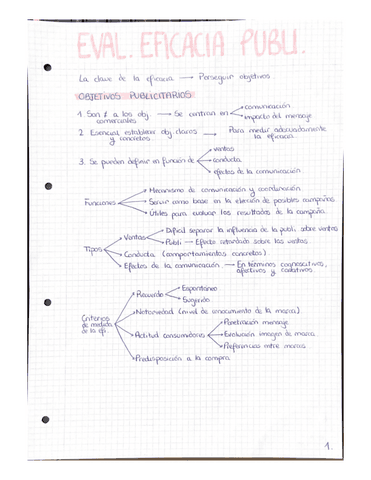 EVAL. EFICACIA PUBLI.
La clave de la eficacia → Perseguir objetivos.
OBJETIVOS PUBLICITARIOS
1. Son ≠ a los obj. comerciales → Se centran en
comunicación
impacto del mensaje
2. Esencial establecer obj. claros y concretos. → Para medir adecuadamente la eficacia.
3. Se pueden definir en función de
ventas
conducta
efectos de la comunicación
Funciones
Mecanismo de comunicación y coordinación.
Servir como base en la elección de posibles campañas.
Útiles para evaluar los resultados de la campaña.
Tipos
Ventas
Difícil separar la influencia de la publi. sobre ventas
Publi → Efecto retardado sobre las ventas.
Conducta (comportamientos concretos)
Efectos de la comunicación. → En términos cognoscitivos, afectivos y conativos.
Criterios de medida de la efi.
Recuerdo
Espontáneo
Sugerido
Notoriedad (nivel de conocimiento de la marca)
Actitud consumidores
Penetración mensaje.
Evaluación imagen de marca
Preferencias entre marcas
Predisposición a la compra.
1.